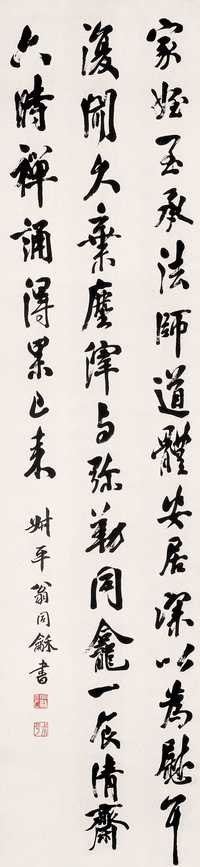 家姪至承法師道體安居深以為慰耳
復聞久棄塵滓与弥勒同龕一食清齋
六時禪誦得果已来
叔平翁同龢書